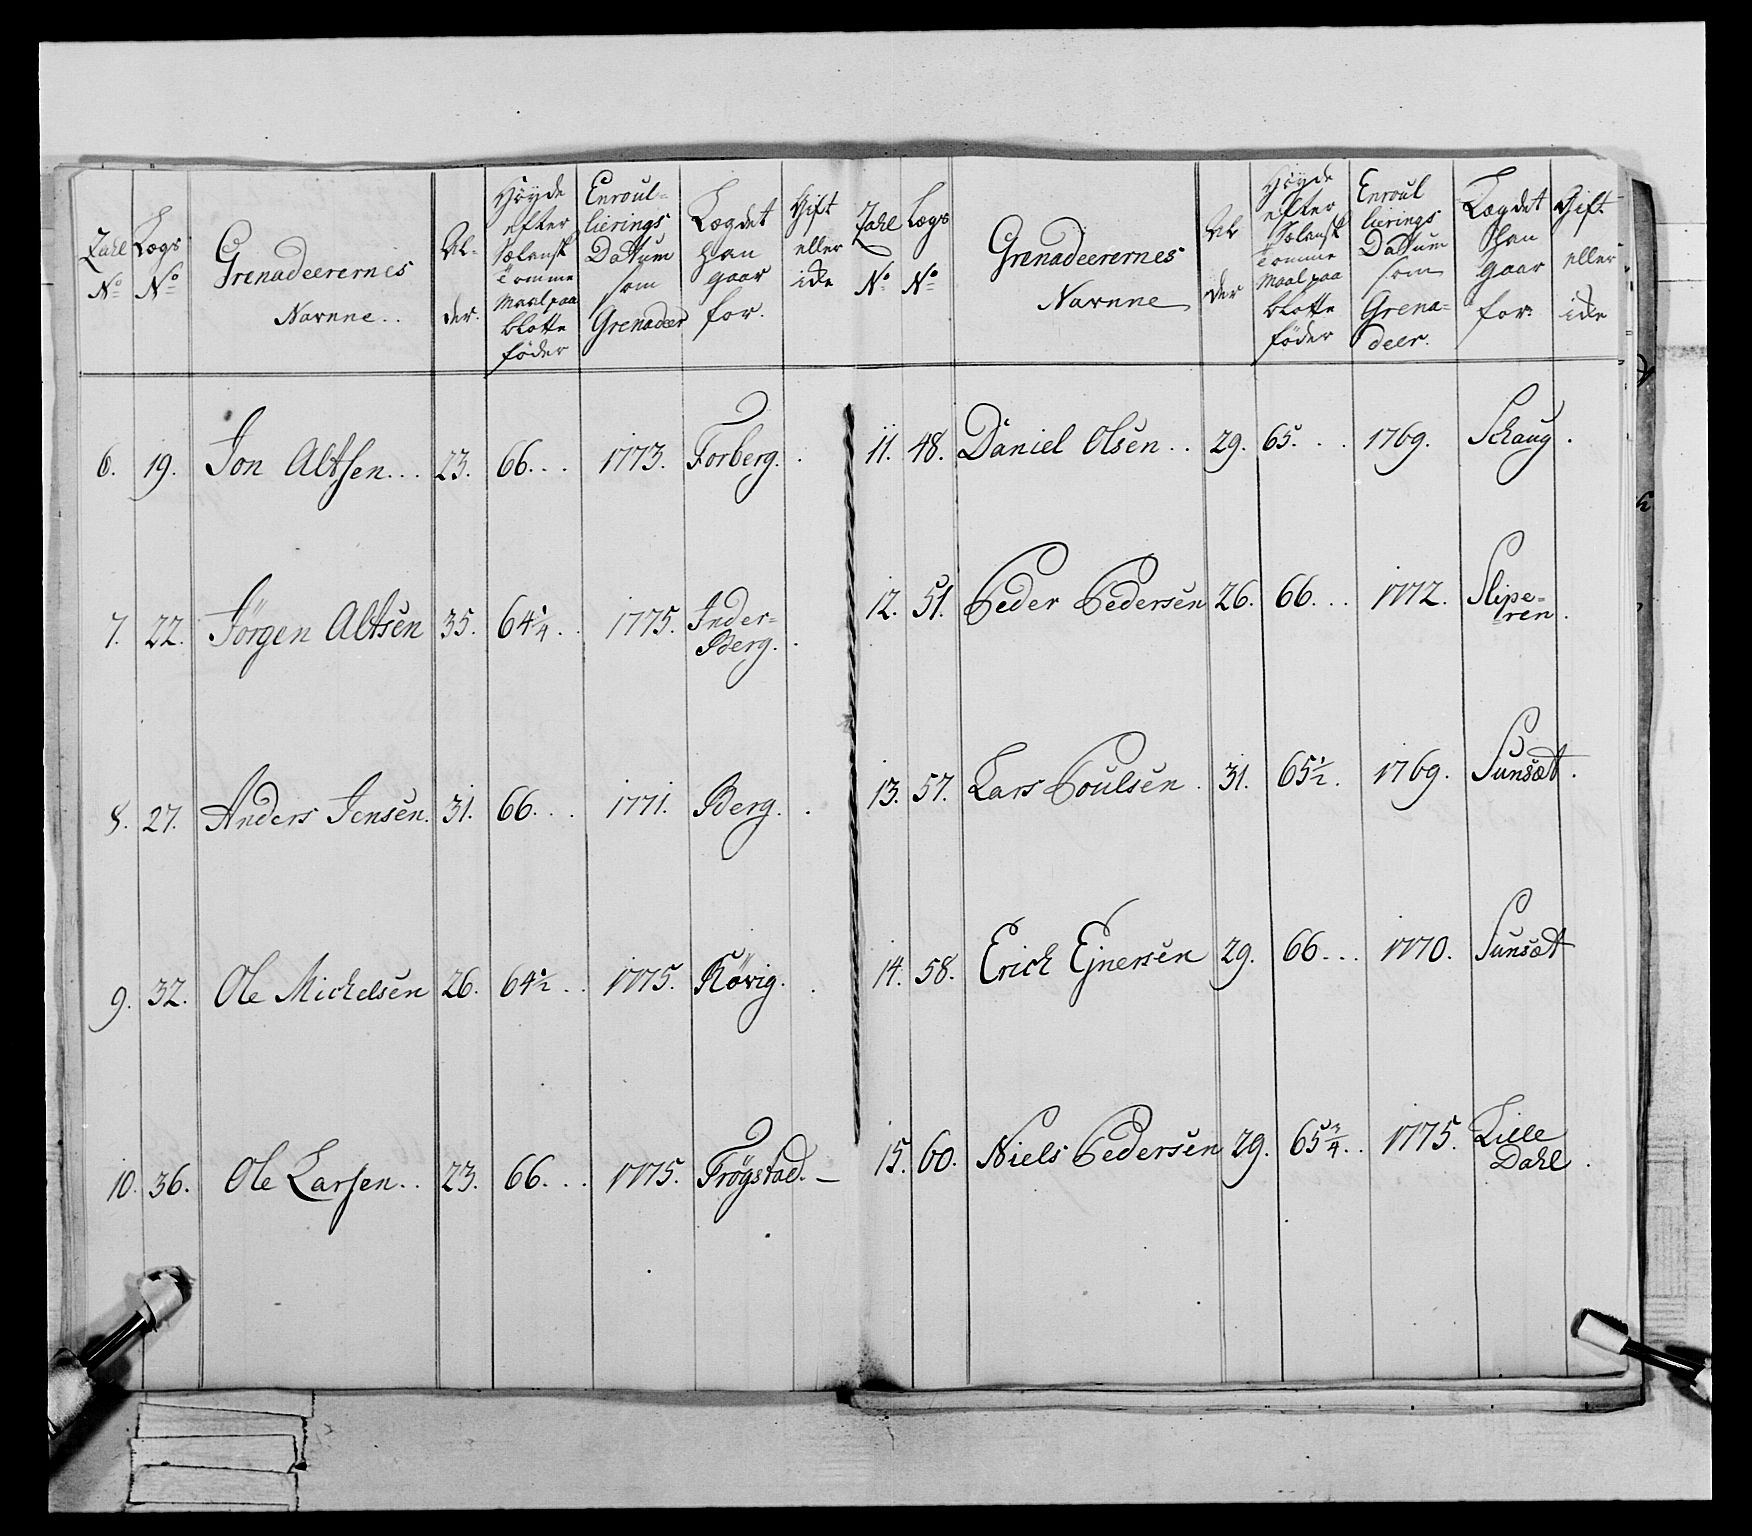 Zahl No | Lægs No | Grenadeerernes Navnne.. | Al-der. | Höyde efter Sælansk Tomme Maal paa blotte föder | Enroul-lierings Dattum som Grenadeer | Lægdet han gaar for. | Gift eller icke
6. | 19. | Jon Altsen... | 23. | 66... | 1773. | Forberg. | .
7. | 22. | Jörgen Altsen | 35. | 64 1/4.. | 1775. | Inder=Berg. | .
8. | 27. | Anders Jensen. | 31. | 66... | 1771. | Berg. | .
9. | 32. | Ole Michelsen | 26. | 64 1/2.. | 1775. | Rövig. | .
10. | 36. | Ole Larsen.. | 23. | 66... | 1775. | Frögstad. | –
Zahl No | Lægs No | Grenadeerernes Navnne | Al der | Höyde efter Sælansk Tomme Maal paa blotte föder | Enroul lierings Dattum som Grena=deer. | Lægdet han gaar for. | Gift eller icke
11. | 48. | Daniel Olsen.. | 29. | 65... | 1769. | Schaug | .
12. | 51. | Peder Pedersen | 26. | 66... | 1772. | Slipe=ren | .
13. | 57. | Lars Poulsen. | 31. | 65 1/2. | 1769. | Sunsæt | .
14. | 58. | Erich Ejnersen | 29. | 66... | 1770. | Sunsæt
15. | 60. | Niels Pedersen | 29. | 65 3/4.. | 1775. | Lille Dahl | .